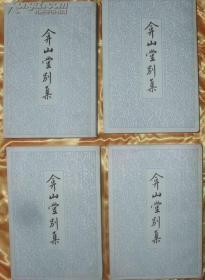 弇山堂别集
弇山堂别集
弇山堂别集
弇山堂别集